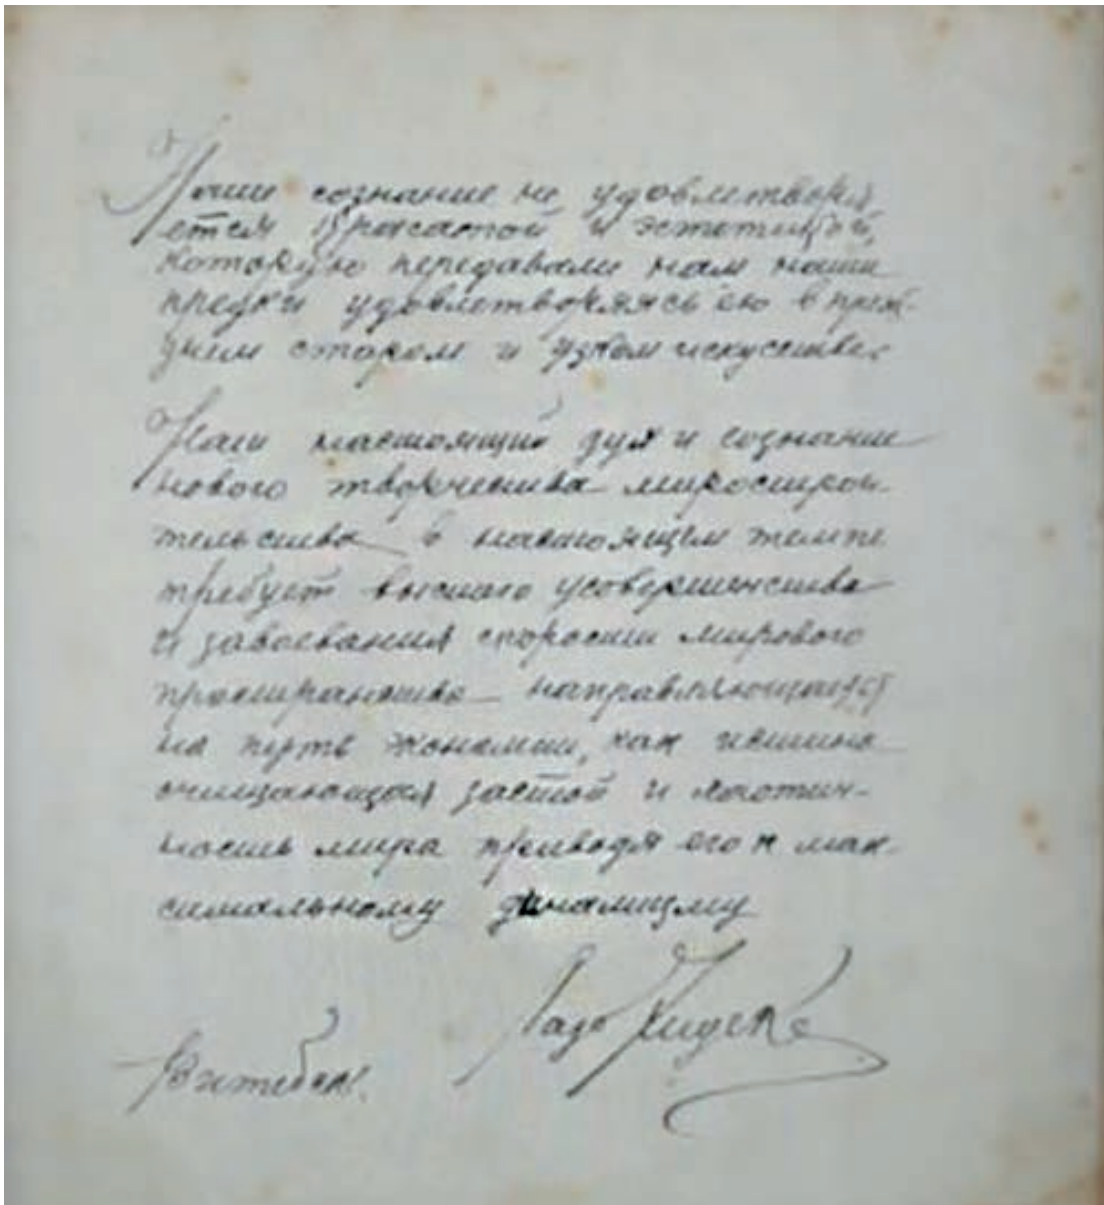 Наше сознание не удовлетворя
ется красотой и эстетикой,
которую передавали нам наши
предки удовлетворяясь ею в преж-
днем старом и узком искусстве.
Наш настоящий дух и сознание
нового творчества мирострои
тельства в настоящем темпе
требует высшаго усовершенства
и завоевания скорости мирового
пространства направляющагося
на путь экономии, как истина
очищающая застой и
ность мира приводя его к мак-
симальному динамизму
Витебск.